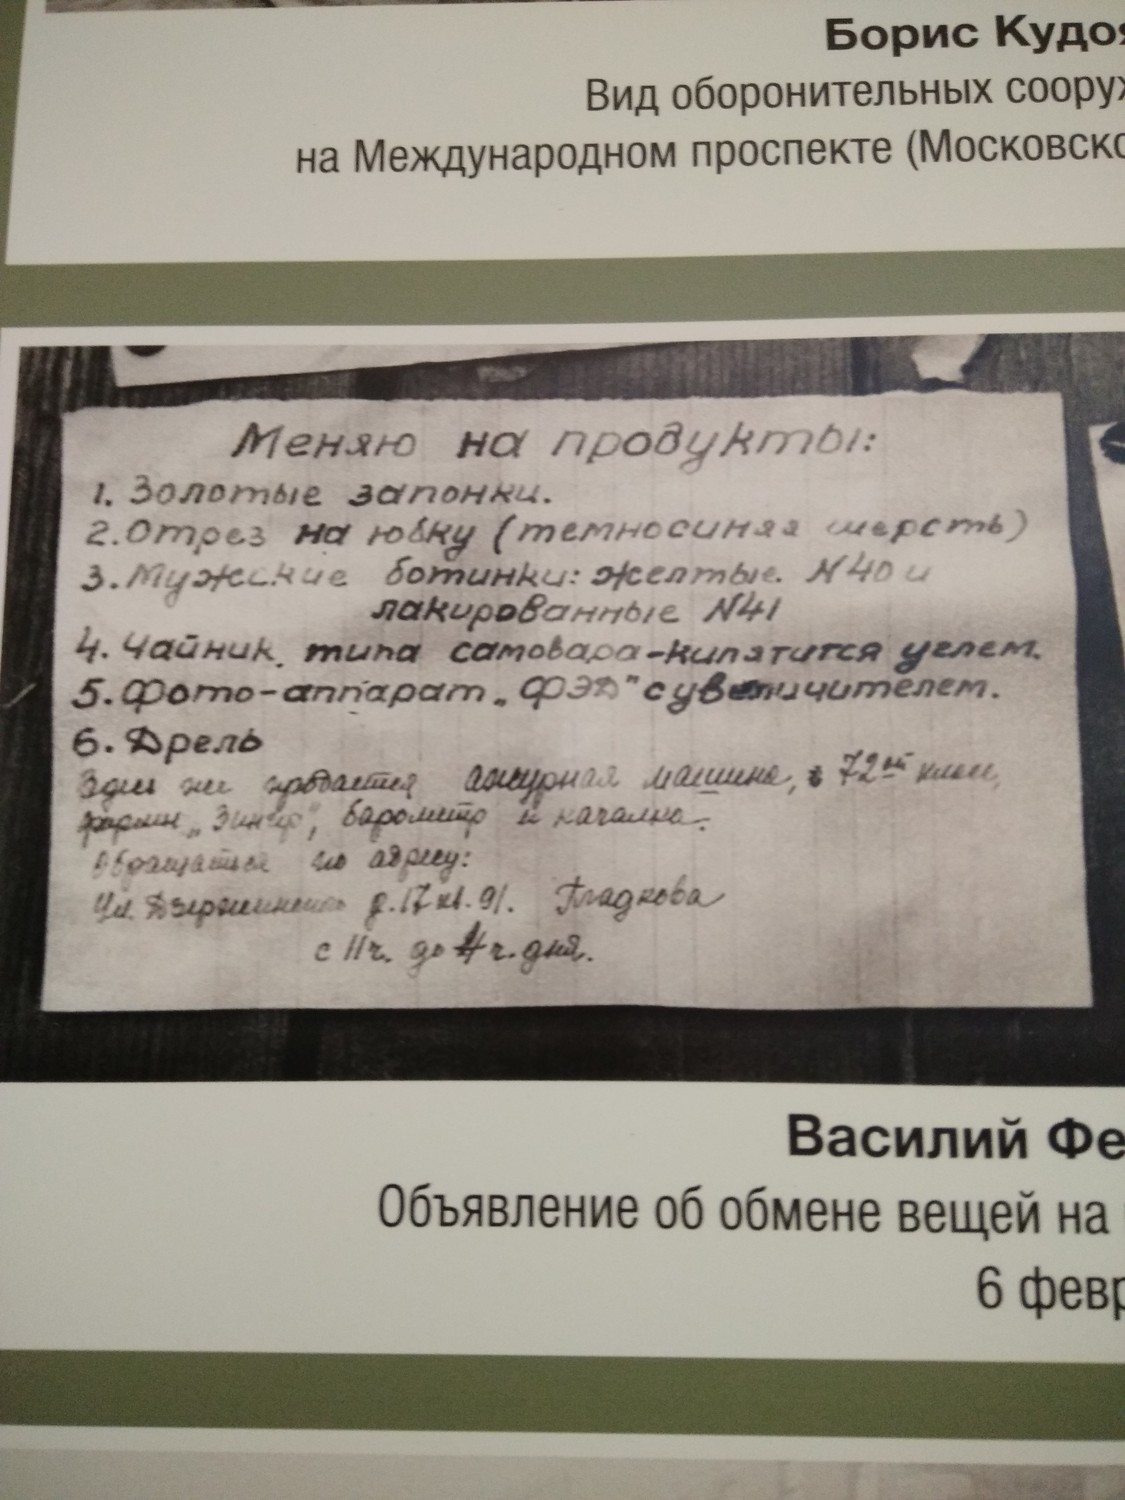 Борис Кудоя
Вид оборонительных сооруж
на Международном проспекте (Московско
Меняю на продукты:
1. Золотые запонки.
2. Отрез на юбку (темносиняя шерсть)
3. Мужские ботинки: желтые N40 и
лакированные N41
4. Чайник типа самовара-кипятится углем.
5. Фото-аппарат „ФЭД" с увеличителем.
6. Дрель
Здесь же продается ажурная машина, 72ой класс,
фирмы „Зингер", барометр и качалка.
Обращаться по адресу:
Ул. Дзержинского д. 17 кв. 91. Гладкова
с 11 ч. до 4 ч. дня.
Василий Фе
Объявление об обмене вещей на
6 февр